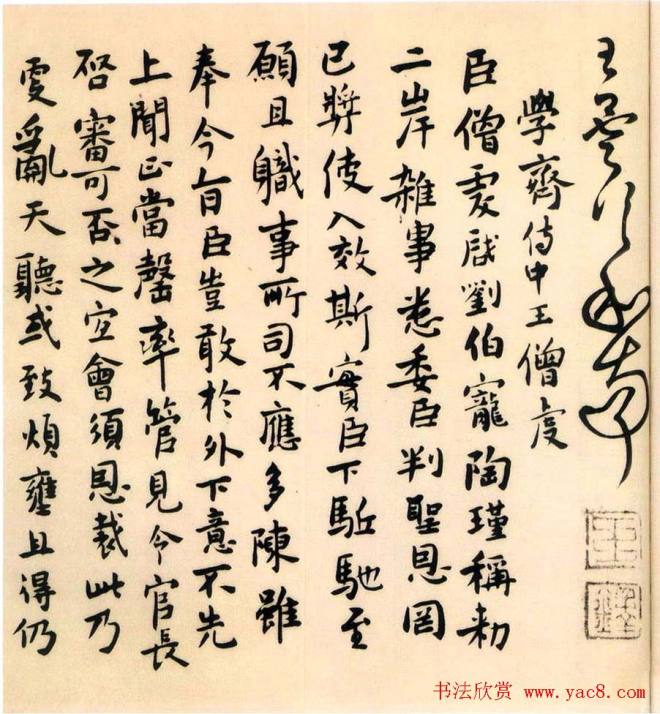 和南
學齊侍中王僧虔
臣僧虔啟劉伯寵陶瑾稱勑
二岸雜事悉委臣判聖恩罔
已弊伎入效斯實臣下駈馳至
願且職事所司不應多陳雖
奉今旨臣豈敢於外下意不先
上聞正當罄率管見令官長
啓審可否之宜會須恩裁此乃
更亂天聽或致煩壅且得仍
书法欣赏 www.yac8.com